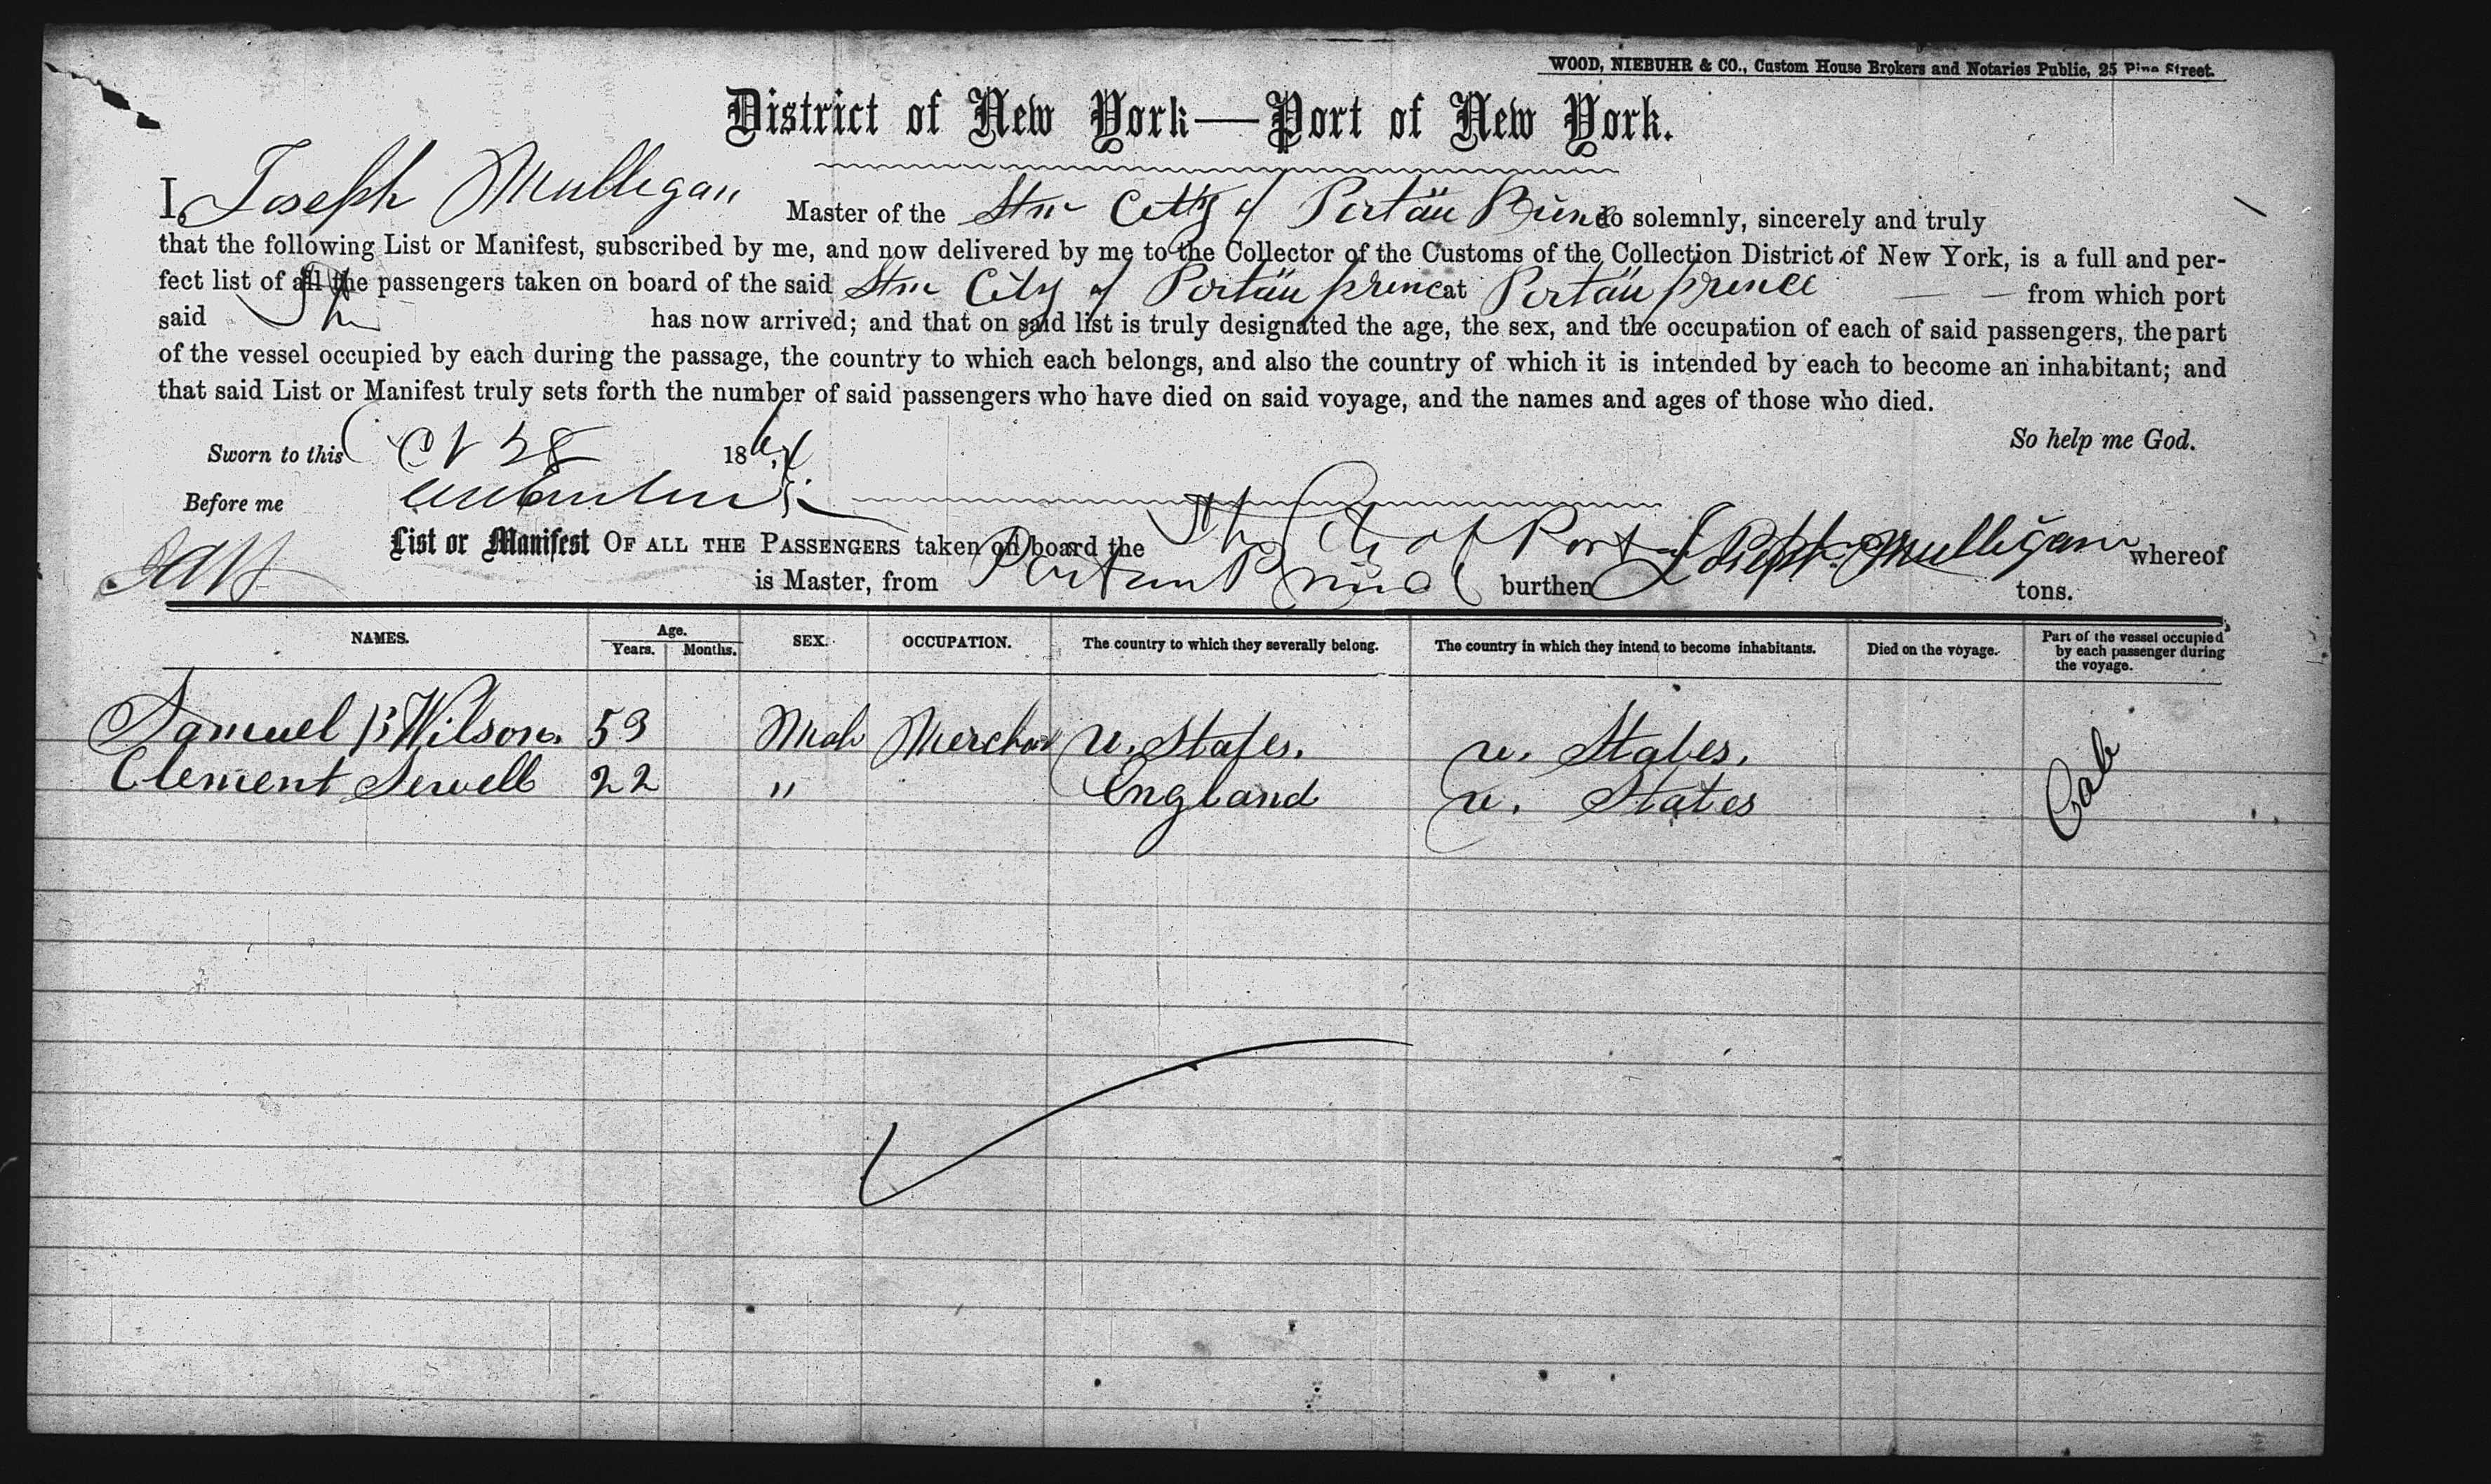 WOOD, NIEBUHR & CO., Custom House Brokers and Notaries Public, 25 Pine Street.
District of New York—Port of New York.
I, Joseph Mulligan Master of the Stm City of Portau Prince do solemnly, sincerely and truly
that the following List or Manifest, subscribed by me, and now delivered by me to the Collector of the Customs of the Collection District of New York, is a full and per-
fect list of all the passengers taken on board of the said Stm City of Portau prince at Portau prince from which port
said has now arrived; and that on said list is truly designated the age, the sex, and the occupation of each of said passengers, the part
of the vessel occupied by each during the passage, the country to which each belongs, and also the country of which it is intended by each to become an inhabitant; and
that said List or Manifest truly sets forth the number of said passengers who have died on said voyage, and the names and ages of those who died.
So help me God.
Sworn to this 28 186
Before me
List or Manifest OF ALL THE PASSENGERS taken on board the City of Port Joseph Mulligan whereof
is Master, from Portau Prince burthen tons.
NAMES. Age. Years. Months. SEX. OCCUPATION. The country to which they severally belong. The country in which they intend to become inhabitants. Died on the voyage. Part of the vessel occupied by each passenger during the voyage.
Samuel B Wilson. 53 Male Merchant U. States. U. States.
Clement Sewell 22 " England U. States
Cab